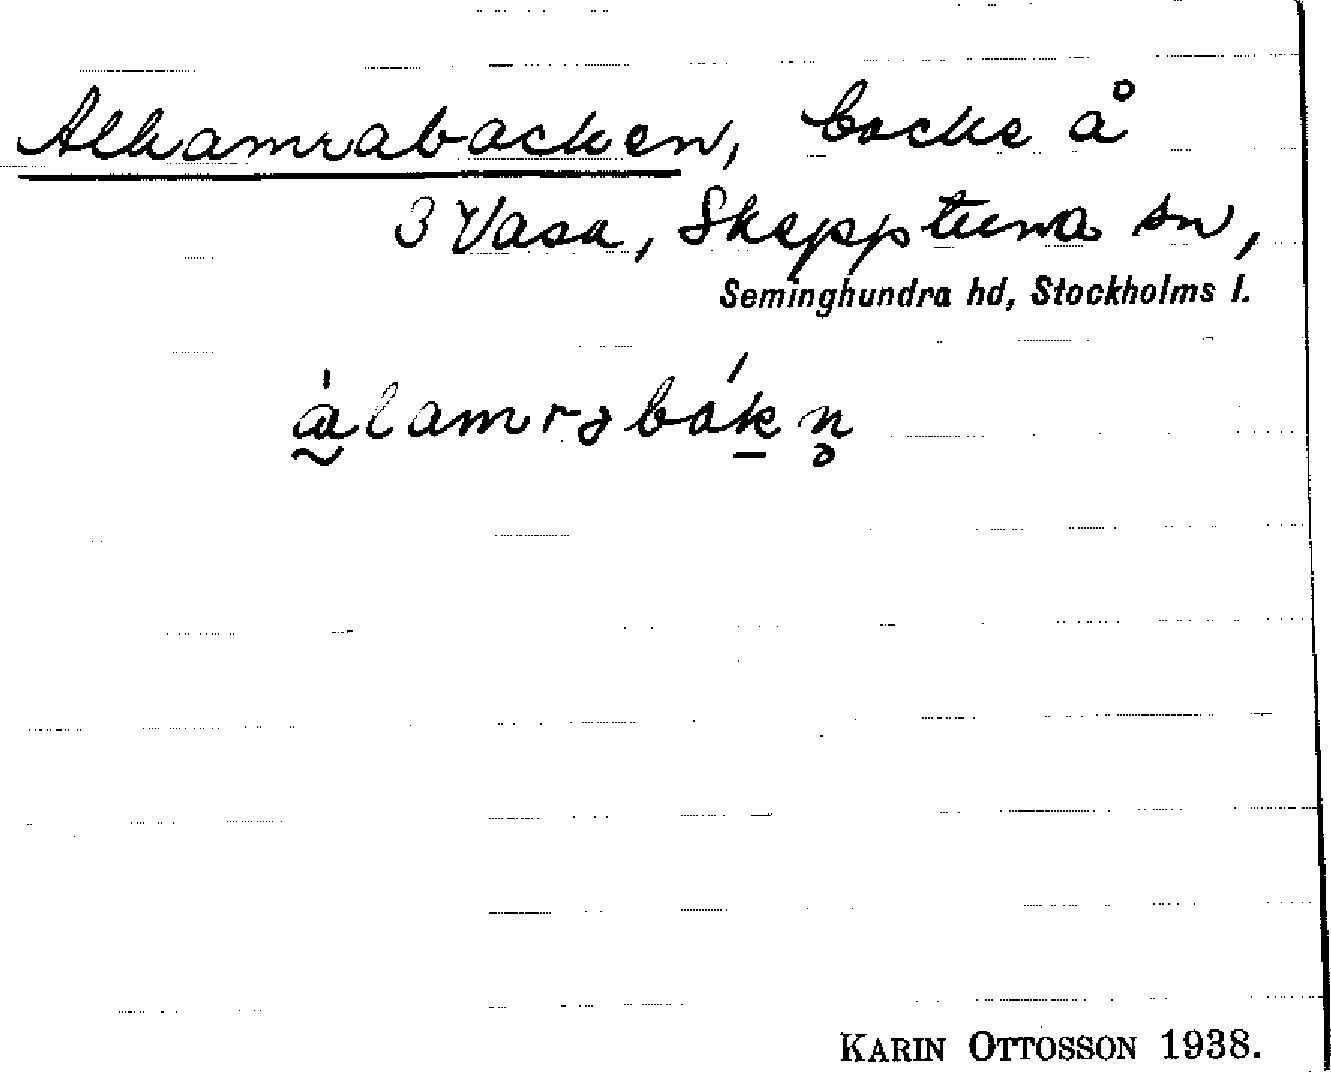 Alhamrabacken, backe å
3 Vasa, Skepptuna sn,
Seminghundra hd, Stockholms l.
KARIN OTTOSSON 1938.